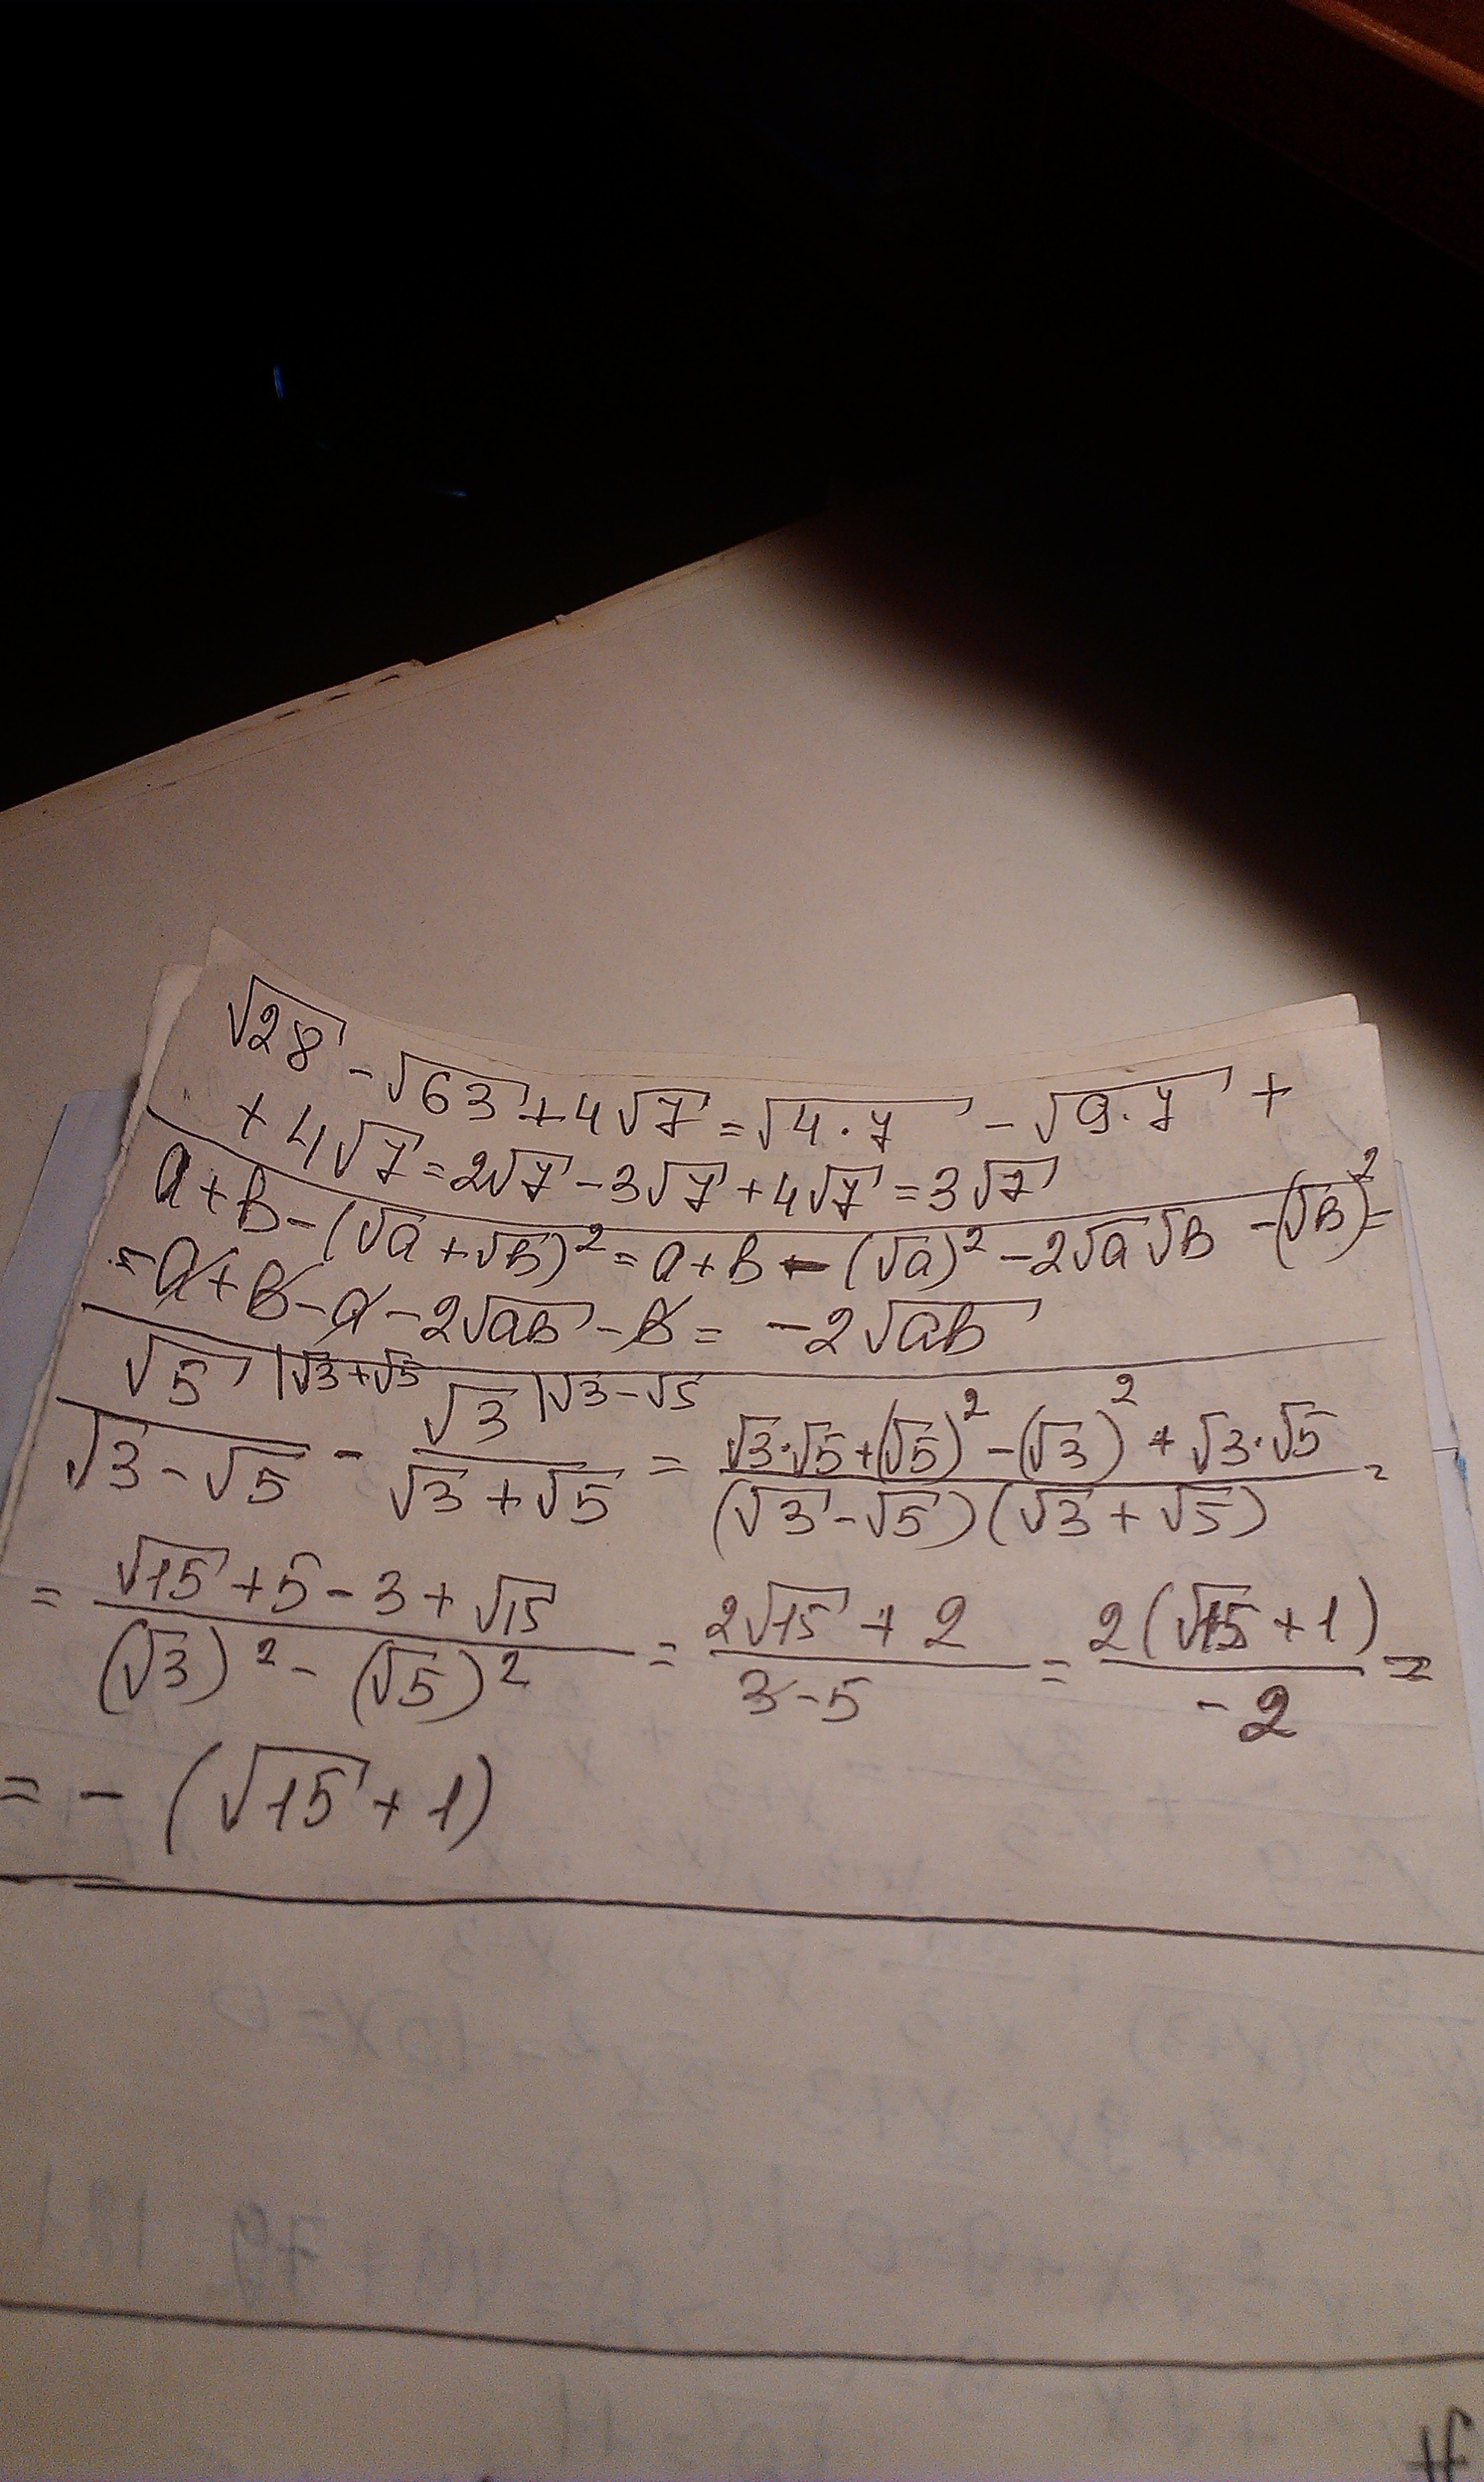 √28 - √63 + 4√7 = √4·7 - √9·7 +
+ 4√7 = 2√7 - 3√7 + 4√7 = 3√7
a + b - (√a + √b)² = a + b - (√a)² - 2√a√b - (√b)² =
= a + b - a - 2√ab - b = -2√ab
√5 |√3+√5 / √3 - √5 - √3 |√3-√5 / √3 + √5 = √3·√5 + (√5)² - (√3)² + √3·√5 / (√3 - √5)(√3 + √5) =
= √15 + 5 - 3 + √15 / (√3)² - (√5)² = 2√15 + 2 / 3 - 5 = 2(√15 + 1) / -2 =
= - (√15 + 1)